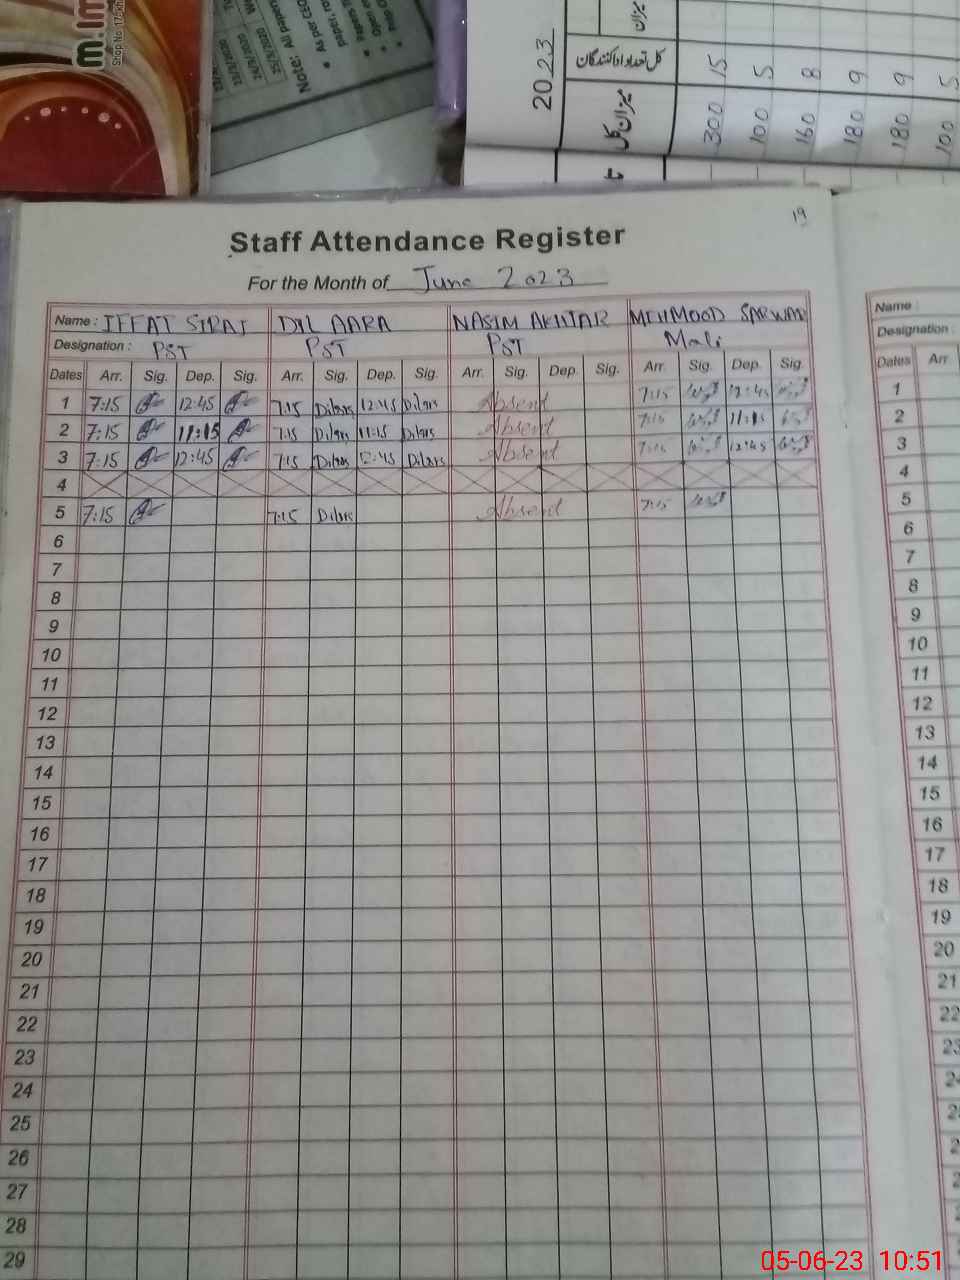 m.im
Shop No 17-
25/5/2020
Note: All papers
As per CEO
2023
میزان
کل تعداد ادا کنندگان
15 5 8 9 9 5
میزان کل
300 100 160 180 180 100
19
Staff Attendance Register
For the Month of June 2023
Name : IFFAT SIRAJ DIL AARA NASIM AKHTAR MEHMOOD SARWAR
Designation : PST PST PST Mali
Dates Arr. Sig. Dep. Sig. Arr. Sig. Dep. Sig. Arr. Sig. Dep. Sig. Arr. Sig. Dep. Sig.
1 7:15 12:45 7:15 Dilars 12:45 Dilars Absent 7:15 12:45
2 7:15 11:15 7:15 Dilars 11:15 Dilars Absent 7:15 11:15
3 7:15 12:45 7:15 Dilars 12:45 Dilars Absent 7:15 12:45
4
5 7:15 7:15 Dilars Absent 7:15
6
7
8
9
10
11
12
13
14
15
16
17
18
19
20
21
22
23
24
25
26
27
28
29
Name :
Designation :
Dates Arr
1
2
3
4
5
6
7
8
9
10
11
12
13
14
15
16
17
18
19
20
21
22
23
05-06-23 10:51